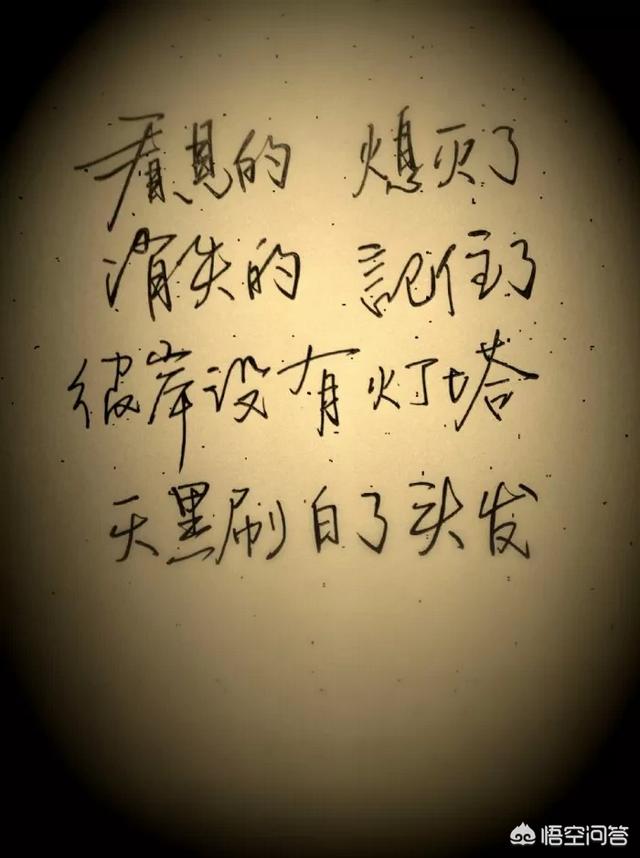 看見的 熄灭了
消失的 記住了
彼岸没有灯塔
天黑刷白了头发
悟空问答